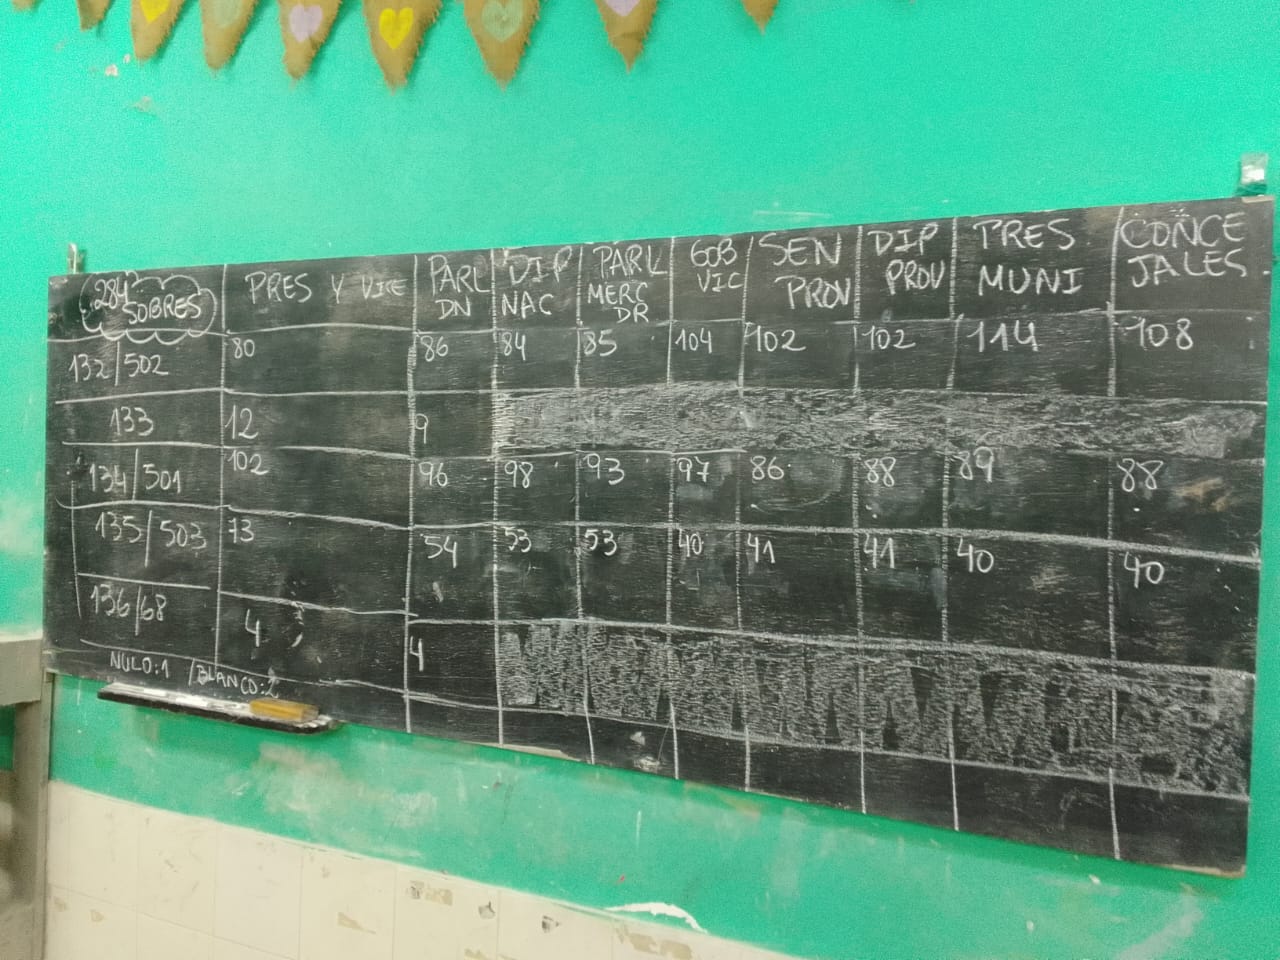 284 SOBRES | PRES Y VICE | PARL DN | DIP NAC | PARL MERC DR | GOB VIC | SEN PROV | DIP PROV | PRES MUNI | CONCE JALES
132/502 | 80 | 86 | 84 | 85 | 104 | 102 | 102 | 114 | 108
133 | 12 | 9
134/501 | 102 | 96 | 98 | 93 | 97 | 86 | 88 | 89 | 88
135/503 | 73 | 54 | 53 | 53 | 40 | 41 | 41 | 40 | 40
136/68 | 4 | 4
NULO:1 /BLANCO:2